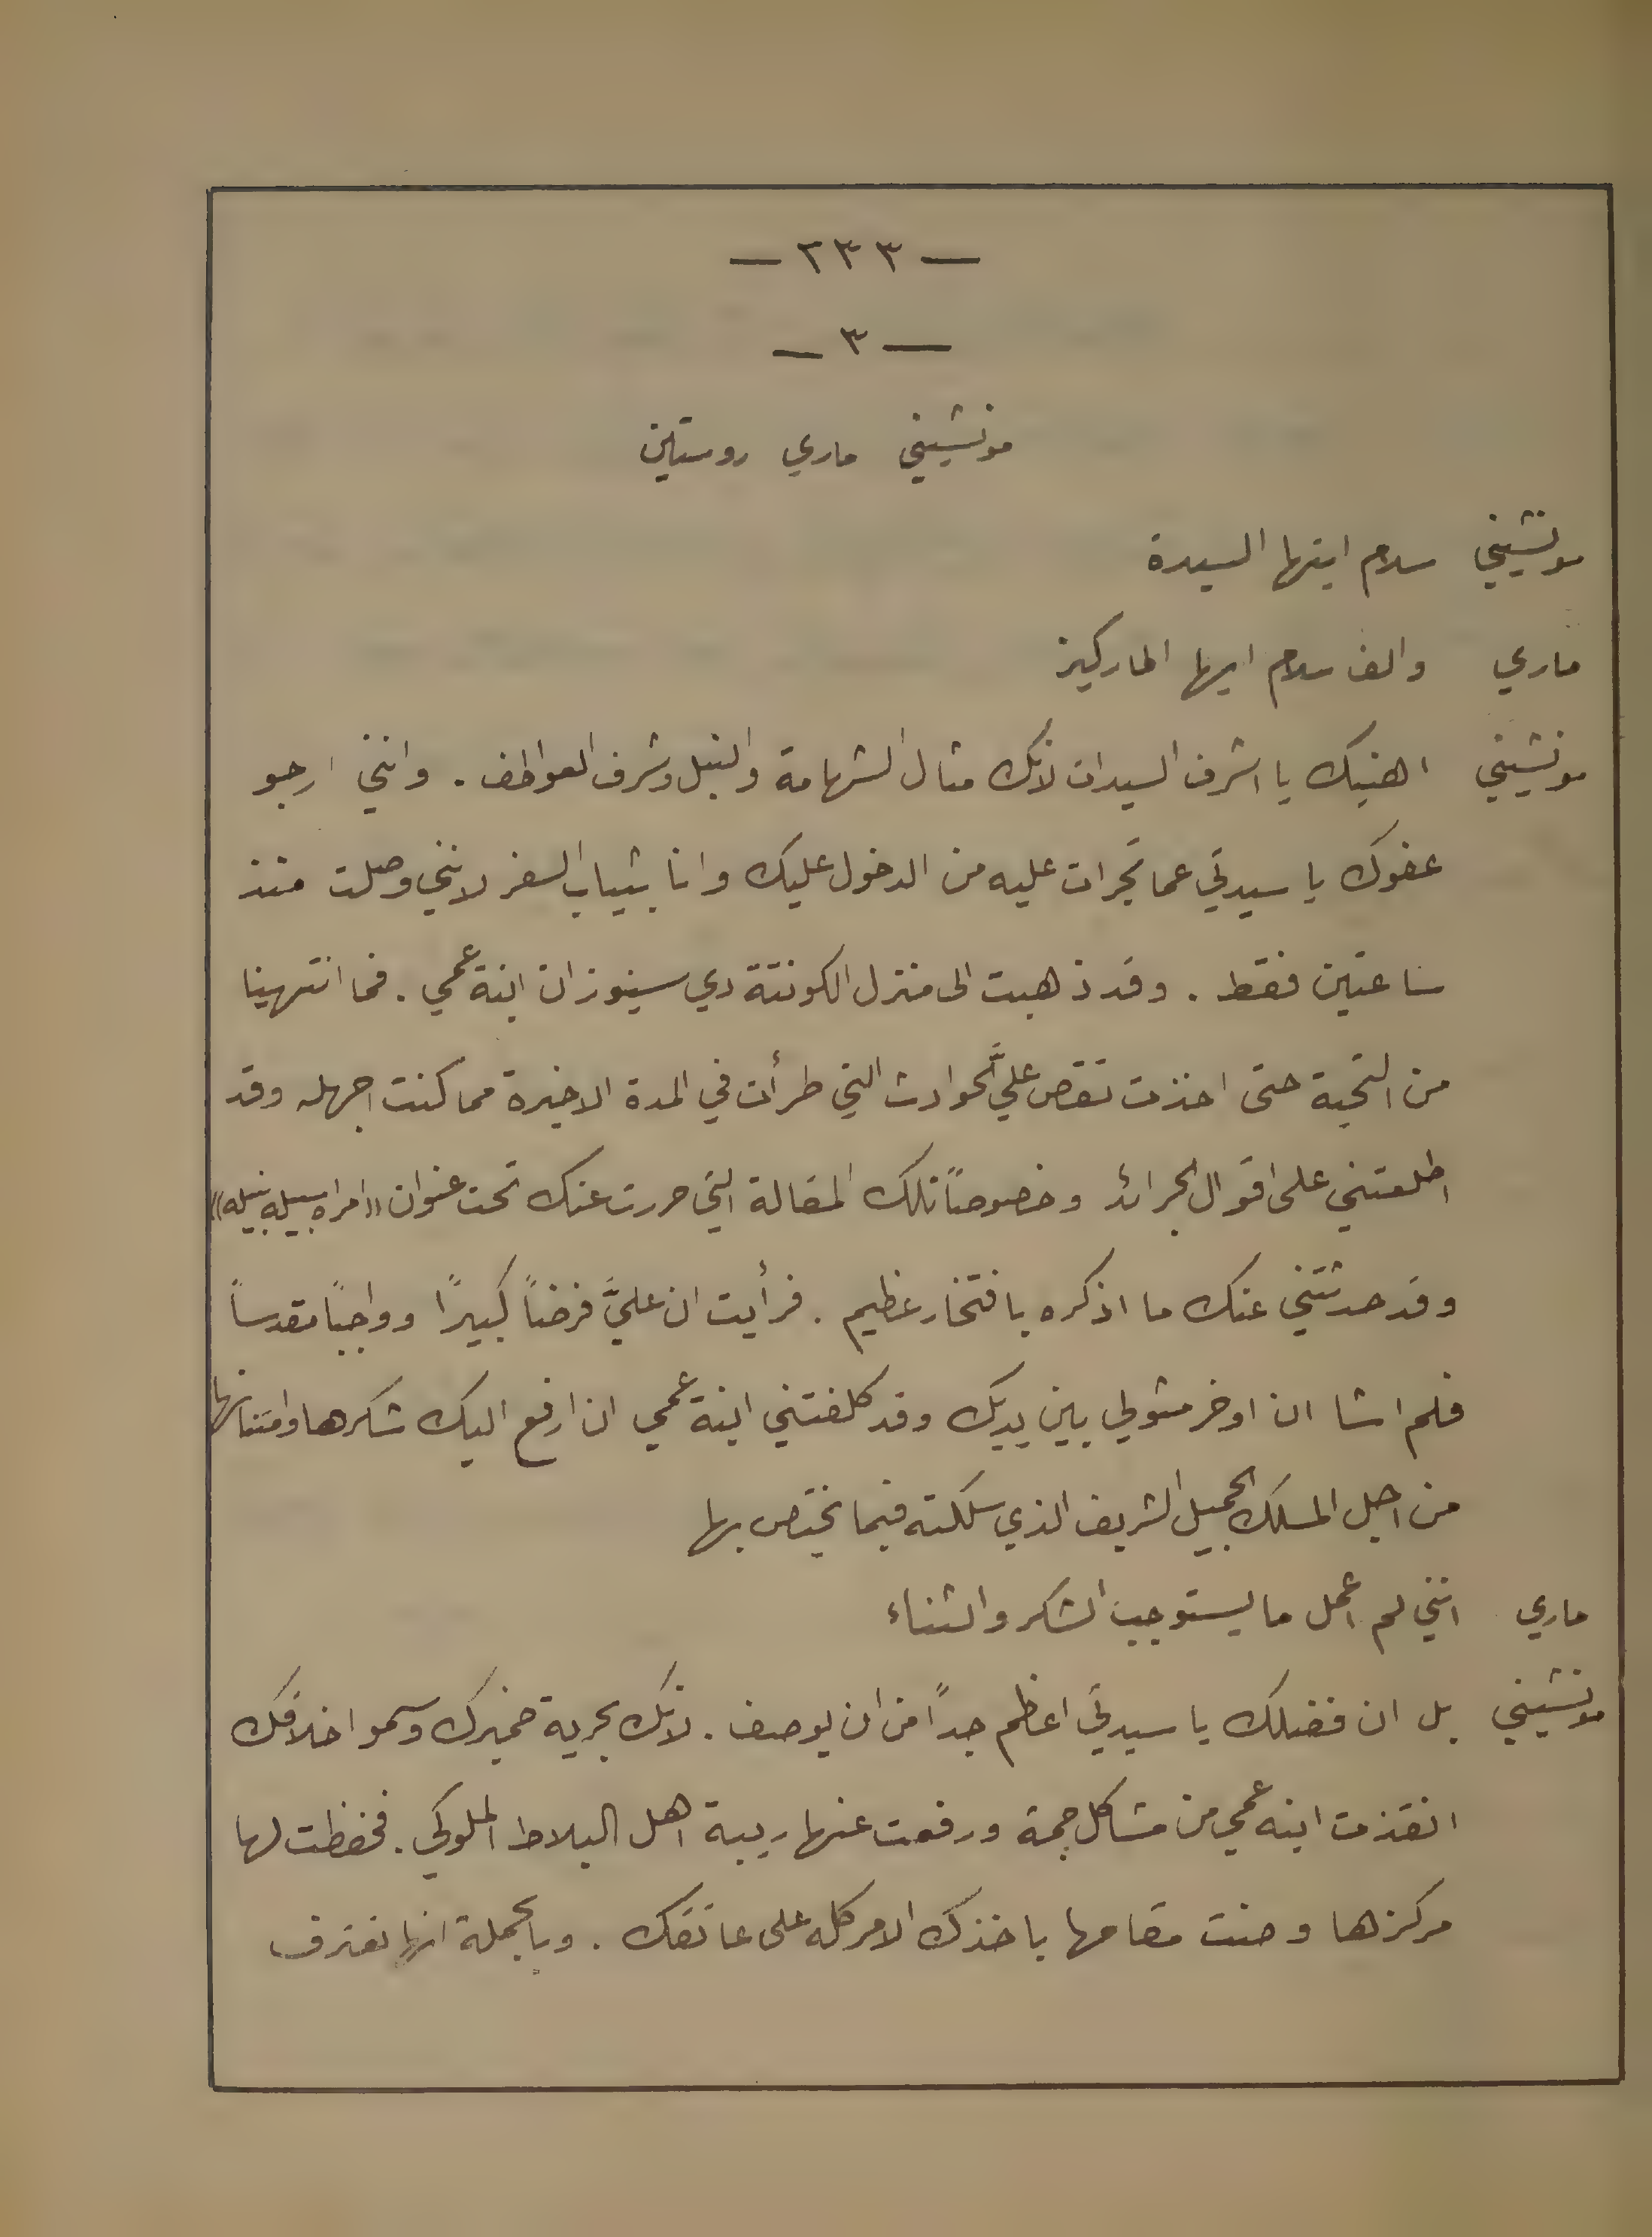 — ٢٣٣ —
— ٣ —
مونتشيني ماري روستين
مونتشيني سلام ايتها السيدة
ماري والف سلام ايها الماركيز
مونتشيني اهنيك يا اشرف السيدات لانك مثال الشهامة والنبل وشرف العواطف . وانني ارجو
عفوك يا سيدتي عما تجرات عليه من الدخول عليك وانا بثياب السفر لانني وصلت منذ
ساعتين فقط . وقد ذهبت الى منزل الكونتة دي سينوزان ابنة عمي . فما انتهينا
من التحية حتى اخذت تقص عليَّ الحوادث التي طرأت في المدة الاخيرة مما كنت اجهله وقد
اطلعتني على اقوال الجرائد وخصوصاً تلك المقالة التي حررت عنك تحت عنوان «امراه نبيله»
وقد حدثتني عنك ما اذكره بافتخار عظيم . فرأيت ان عليَّ فرضاً كبيرًا وواجبًا مقدساً
فلم اشا ان اوخر مثولي بين يديك وقد كلفتني ابنة عمي ان ارفع اليك شكرها وامتنانها
من اجل المسلك الجميل الشريف الذي سلكته فيما يختص بها
ماري انني لم اعمل ما يستوجب الشكر والثناء
مونتشيني بل ان فضلك يا سيدتي اعظم جداً من ان يوصف . لانك بحرية ضميرك وسمو اخلاقك
انقذت ابنه عمي من مشاكل جمة ورفعت عنها ريبة اهل البلاط الملوكي . فحفظت لها
مركزها وصنت مقامها باخذك الامر كله على عاتقك . وبالجملة انها تعترف